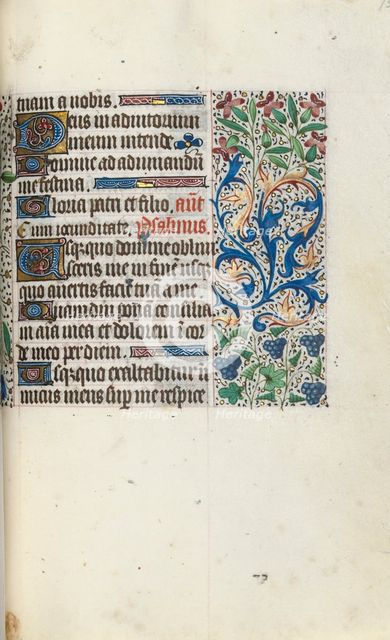 tuam a vobis.
Deus in adiutorium
meum intende
Domine ad adiuuandū
me festina.
Gloria patri et filio, añt
Cum iocunditate. Psalmus.
Usq̄quo domine obliui
sceris me in finē usq̄
quo avertis faciē tuā a me.
Quamdiu ponā consilia
in aīa mea et dolorem ī cor
de meo per diem.
Usq̄quo exaltabitur in
imicus meus sup me respice
Heritage
Heritage